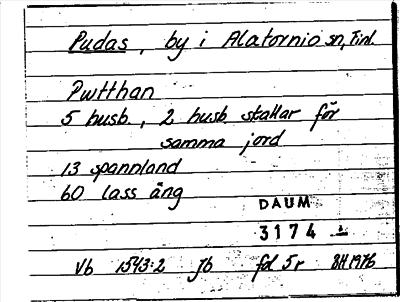 Pudas, by i Alatornio sn, Finl.
Pwtthan
5 husb., 2 husb skattar för
samma jord
13 spannland
60 lass äng
DAUM
3174
Vb 1543:2 Jb fol 5r BH 1976